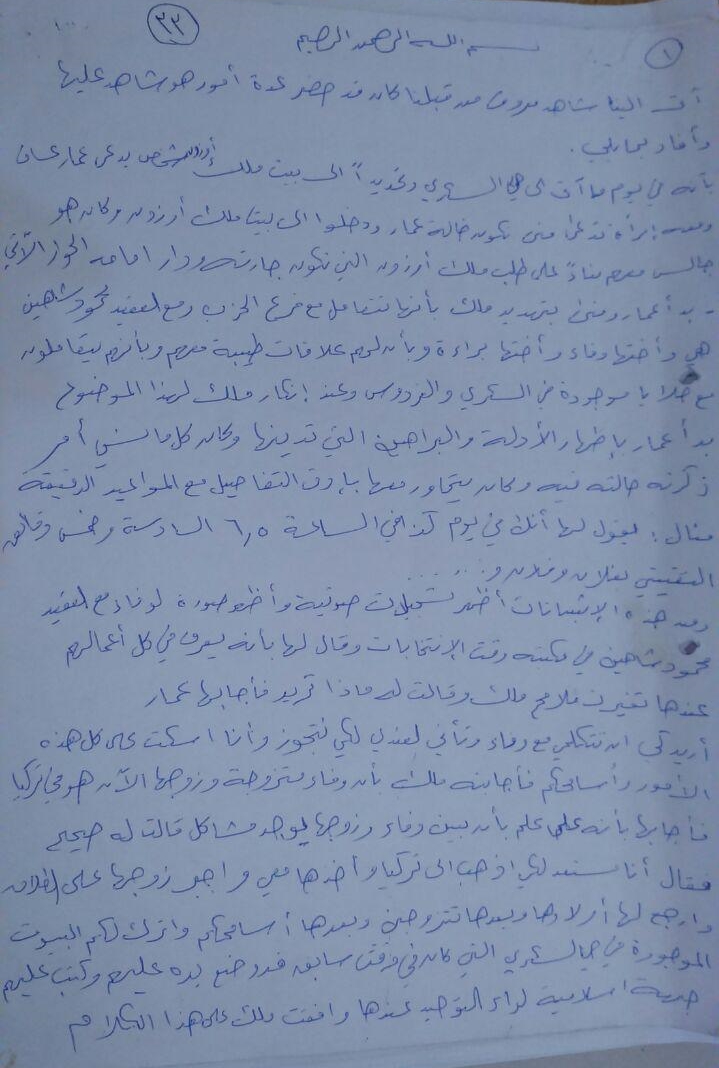 ١
٣٣
بسم الله الرحمن الرحيم
أتى إلينا شاهد معروف من قبلنا كان قد حضر عدة أمور هو شاهد عليها
وأفاد بما يلي .
بأنه في يوم ما أتى إلى حي السكري وتحديداً إلى بيت ملك أرزون شخص يدعى عمار عساف
ومعه إمرأة تدعى منى تكون خالة عمار ودخلوا إلى بيت ملك أرزون وكان هو
جالس معهم بناءً على طلب ملك أرزون التي تكون جارته ودار أمامه الحوار الآتي
بدأ عمار ومنى بتهديد ملك بأنها تتعامل مع فرع الحزب ومع العقيد محمود شاهين
هي وأختها وفاء وأختها براءة وبأن لهم علاقات طيبة معهم وبأنهم يتعاملون
مع خلايا موجودة في السكري والفردوس وعند إنكار ملك لهذا الموضوع
بدأ عمار بإظهار الأدلة والبراهين التي تدينها وكان كل ما نسي أمر
ذكرته خالته فيه وكان يتحاور معها بأدق التفاصيل مع المواعيد الدقيقة
مثال : يقول لها أنك في يوم كذا في الساعة ٦,٥ السادسة وخمس دقائق
التقيتي بفلان وفلان و . . . .
وبعد هذه الإثباتات أظهر تسجيلات صوتية وأظهر صورة لوفاء مع العقيد
محمود شاهين في مكتبه وقت الإنتخابات وقال لها بأنه يعرف في كل أعمالهم
عندها تغيرت ملامح ملك وقالت له ماذا تريد فأجابها عمار
أريدكي ان تتكلمي مع وفاء وتأتي لعندي لكي نتجوز وأنا اسكت على كل هذه
الأمور وأسامحكم فأجابته ملك بأن وفاء متزوجة وزوجها الآن هو في تركيا
فأجابها بأنه على علم بأن بين وفاء وزوجها يوجد مشاكل قالت له صحيح
فقال أنا مستعد لكي اذهب إلى تركيا وأخدها معي واجبر زوجها على الطلاق
وارجع لها أولادها وبعدها نتزوجن وبعدها أسامحكم واترك لكم البيوت
الموجودة في حي السكري التي كان في وقت سابق قد وضع يده عليهم وكتب عليهم
جبهة اسلامية لواء التوحيد عندها وافقت ملك على هذا الكلام